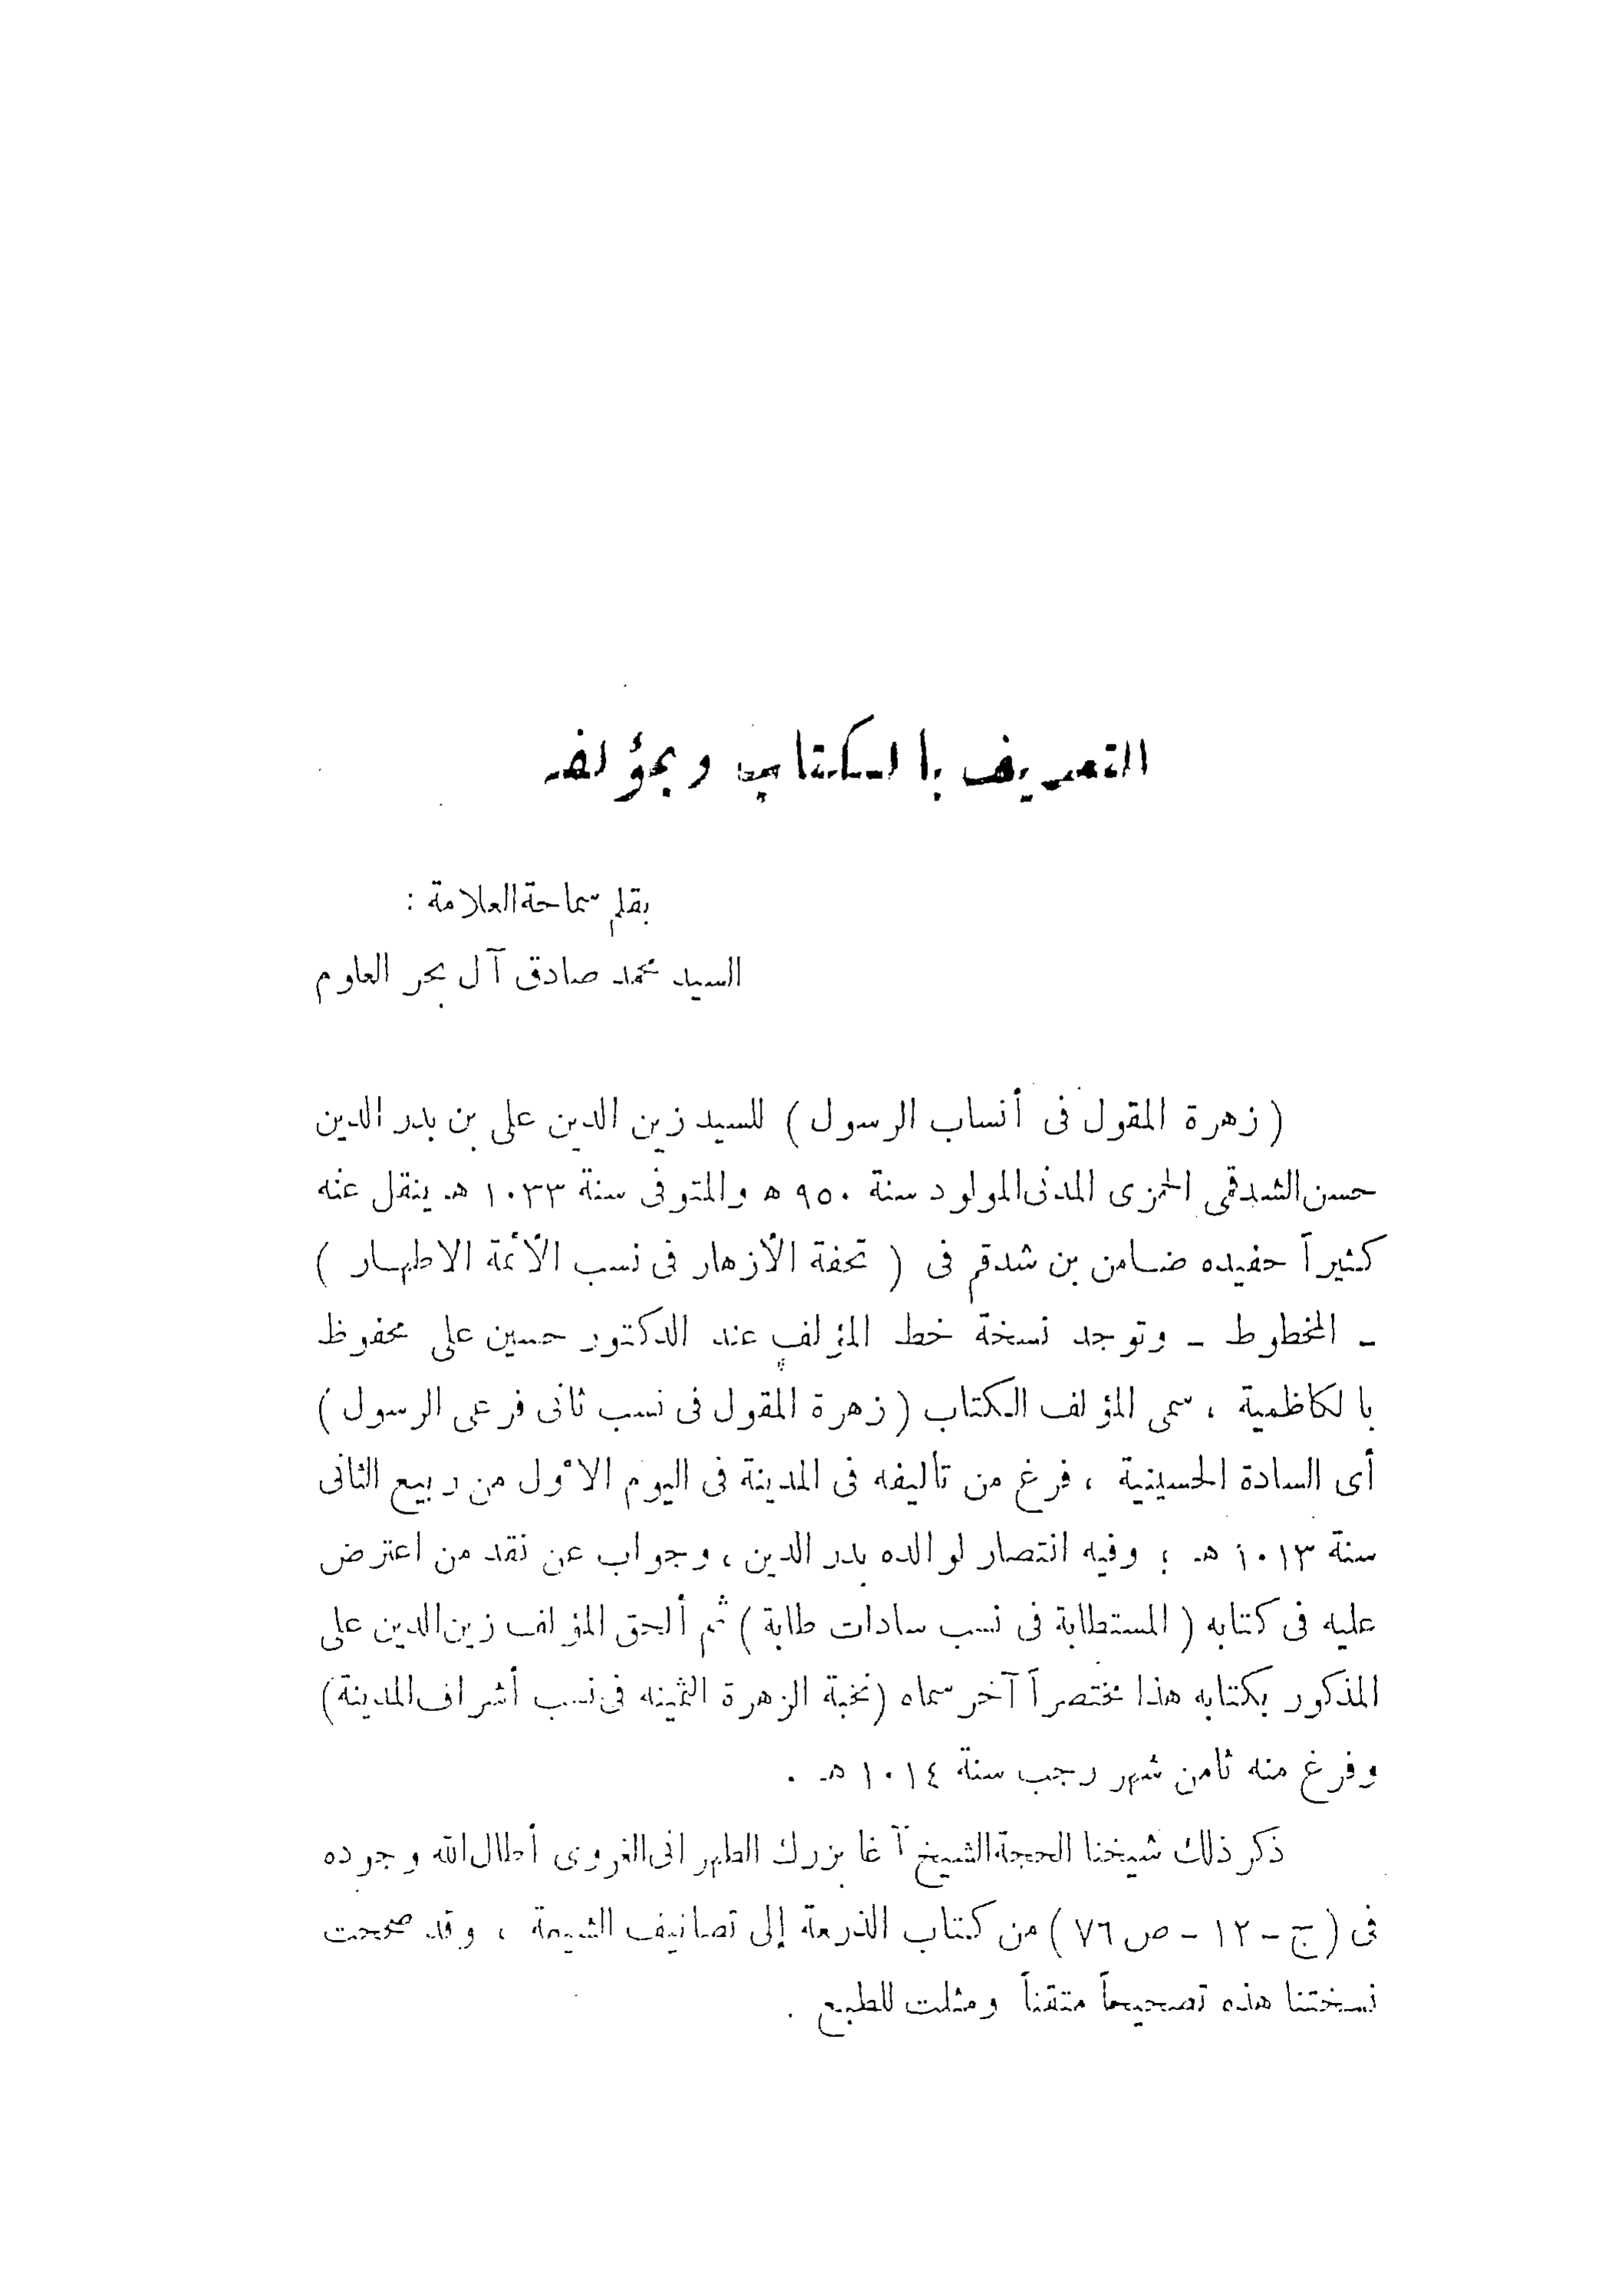 التعريف بالكتاب وبمؤلفه
بقلم سماحة العلامة :
السيد محمد صادق آل بحر العلوم
( زهرة المقول فى أنساب الرسول ) للسيد زين الدين على بن بدر الدين
حسن الشدقمى الحمزى المدنى المولود سنة ٩٥٠ ه والمتوفى سنة ١٠٣٣ هـ ينقل عنه
كثيراً حفيده ضامن بن شدقم فى ( تحفة الأزهار فى نسب الأئمة الاطهار )
ـ المخطوط ـ وتوجد نسخة خط المؤلف عند الدكتور حسين على محفوظ
بالكاظمية ، سمى المؤلف الكتاب ( زهرة المقول فى نسب ثانى فرعى الرسول )
أى السادة الحسينية ، فرغ من تأليفه فى المدينة فى اليوم الأول من ربيع الثانى
سنة ١٠١٣ هـ ؛ وفيه انتصار لوالده بدر الدين ، وجواب عن نقد من اعترض
عليه فى كتابه ( المستطابة فى نسب سادات طابة ) ثم ألحق المؤلف زين الدين على
المذكور بكتابه هذا مختصراً آخر سماه (نخبة الزهرة الثمينه فى نسب أشراف المدينة)
وفرغ منه ثامن شهر رجب سنة ١٠١٤ هـ .
ذكر ذلك شيخنا الحجة الشيخ آغا بزرك الطهرانى الغروى أطال الله وجوده
فى ( ج - ١٢ - ص ٧٦ ) من كتاب الذرعة إلى تصانيف الشيعة ، وقد صححت
نسختنا هذه تصحيحاً متقناً ومثلت للطبع .